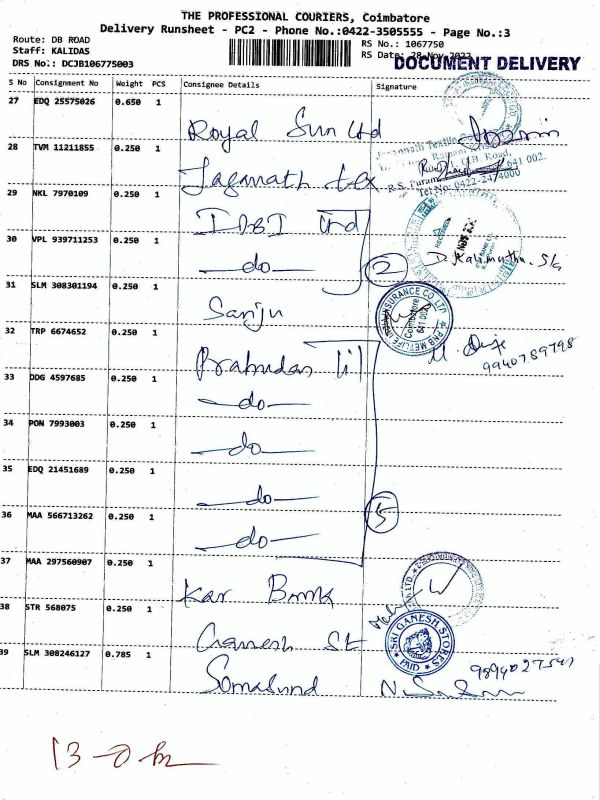 THE PROFESSIONAL COURIERS, Coimbatore
Delivery Runsheet - PC2 - Phone No.:0422-3505555 - Page No.:3
Route: DB ROAD
Staff: KALIDAS
DRS No.: DCJB106775003
RS No.: 1067750
RS Date: 28-Nov-2022
DOCUMENT DELIVERY
S No Consignment No Weight PCS Consignee Details Signature
27 EDQ 25575026 0.650 1 Royal Sun Ltd
28 TVM 11211855 0.250 1 Jaganath tex
R.S. Puram 641 002.
Tel No: 0422-2474000
29 NKL 7970109 0.250 1 IDBI Ltd
30 VPL 939711253 0.250 1 do 2 D. Kalimuthu
31 SLM 308301194 0.250 1 Sanju
PNB METLIFE INSURANCE CO LTD.
Coimbatore
641 002
32 TRP 6674652 0.250 1 Prabudas lil
9940789798
33 DDG 4597685 0.250 1 do
34 PON 7993003 0.250 1 do
35 EDQ 21451689 0.250 1 do
36 MAA 566713262 0.250 1 do 5
37 MAA 297560907 0.250 1 Kar Bank
38 STR 568075 0.250 1 Ganesh St
SRI GANESH STORES
PAID
39 SLM 308246127 0.785 1 Somasund